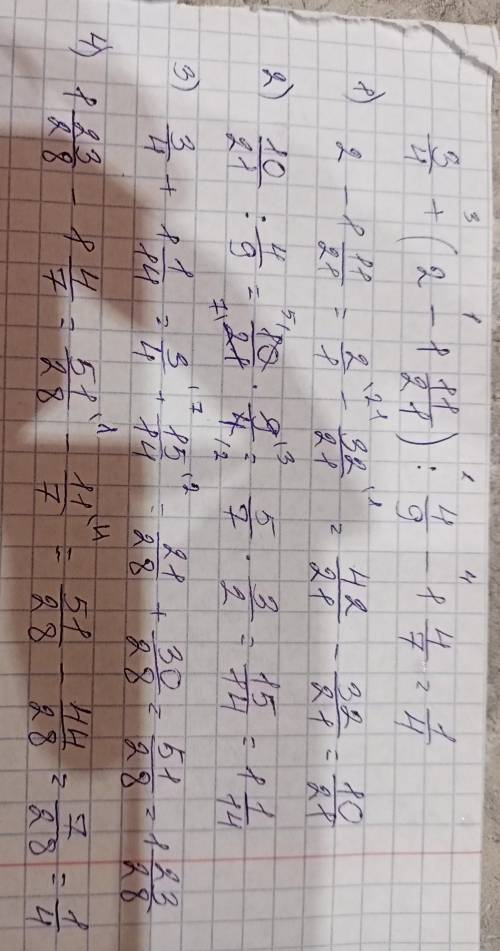 3/4 + (2 - 1 11/21) : 4/9 - 1 4/7 = 1/4
1) 2 - 1 11/21 = 2/1 \21 - 32/21 \1 = 42/21 - 32/21 = 10/21
2) 10/21 : 4/9 = 10/21 · 9/4 = 5/7 · 3/2 = 15/14 = 1 1/14
3) 3/4 + 1 1/14 = 3/4 \7 + 15/14 \2 = 21/28 + 30/28 = 51/28 = 1 23/28
4) 1 23/28 - 1 4/7 = 51/28 \1 - 11/7 \4 = 51/28 - 44/28 = 7/28 = 1/4